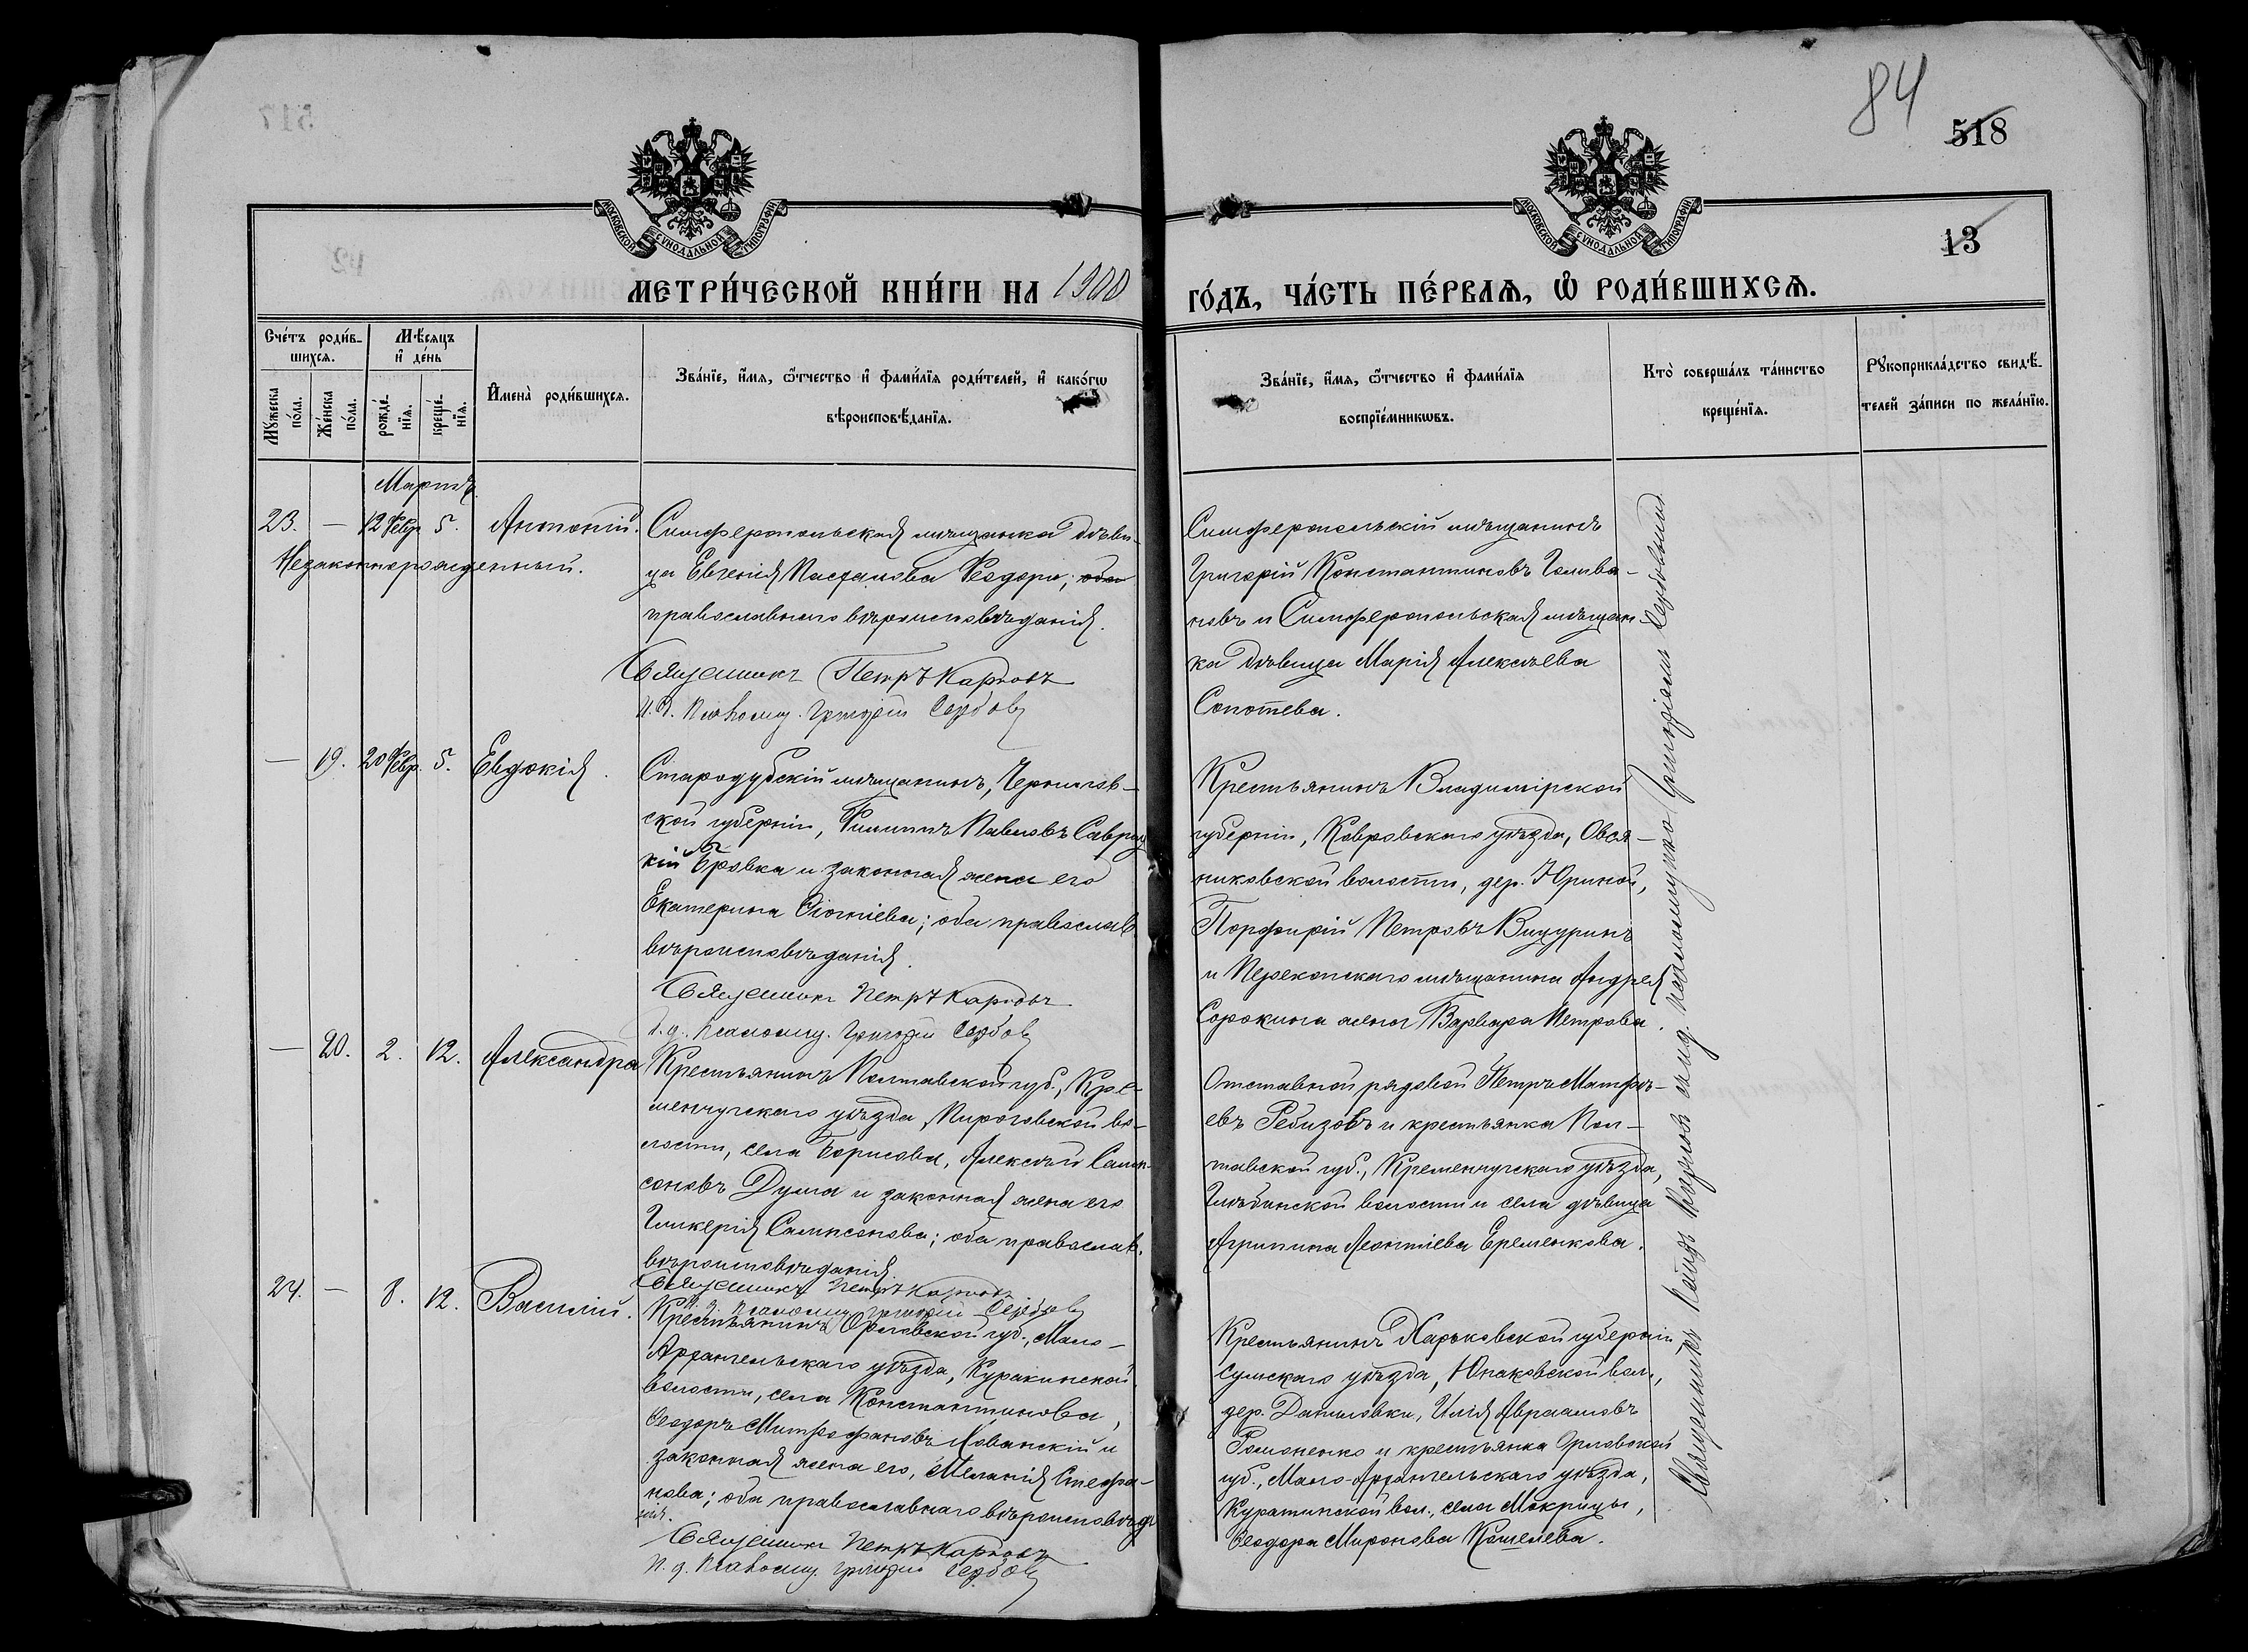 84
518
13
МОСКОВСКОЙ СУНОДАЛЬНОЙ ТИПОГРАФІИ
МОСКОВСКОЙ СУНОДАЛЬНОЙ ТИПОГРАФІИ
МЕТРИ́ЧЕСКОЙ КНИ́ГИ НА 1900
ГО́ДЪ, ЧА́СТЬ ПЕ́РВАѦ, Ѡ РОДИ́ВШИХСѦ.
Сче́тъ роди́в-
шихсѧ.
Мꙋжеска
по́ла.
Же́нска
по́ла.
Мѣ́сѧцъ
и҆ де́нь
рожде́-
нїѧ.
креще́-
нїѧ.
И҆мена̀ роди́вшихсѧ.
Зва́нїе, и҆́мѧ, ѻ҆́тчество и҆ фами́лїѧ роди́телей, и҆ како́гѡ
вѣроисповѣ́данїѧ.
Зва́нїе, и҆́мѧ, ѻ҆́тчество и҆ фами́лїѧ
воспрїе́мникѡвъ.
Кто̀ соверша́лъ та́инство
креще́нїѧ.
Рꙋкоприкла́дство свидѣ́-
телей за́писи по жела́нїю.
Мартъ.
23. — 12 Февр. 5. Антоній.
Незаконнорожденный.
Симферопольская мѣщанка дѣви-
ца Евгенія Пасхалова Феодори; оба
православнаго вѣроисповѣданія.
Священникъ Петръ Карповъ
И. д. псаломщ. Григорій Сербовъ
Симферопольскій мѣщанинъ
Григорій Константиновъ Голива-
новъ и Симферопольская мѣщан-
ка дѣвица Марія Алексѣева
Сопотева.
— 19. 20 Февр. 5. Евдокія.
Стародубскій мѣщанинъ, Чернигов-
ской губерніи, Филиппъ Павловъ
кій Бровка и законная жена его
Екатерина; оба православ.
вѣроисповѣданія.
Священникъ Петръ Карповъ
И. д. псаломщ. Григорій Сербовъ
Крестьянинъ Владимірской
губерніи, Ковровскаго уѣзда, Овся-
никовской волости, дер. Юриной,
Порфирій Петровъ Вицуринъ
и Перекопскаго мѣщанина Андрея
Сорокина жена Варвара Петрова.
— 20. 2. 12. Александра
Крестьянинъ Полтавской губ., Кре-
менчугскаго уѣзда, Пироговской во-
лости, села Борисова, Алексѣй Самп-
соновъ Дума и законная жена его
Гликерія Сампсонова; оба православ.
вѣроисповѣданія.
Священникъ Петръ Карповъ
И. д. псаломщ. Григорій Сербовъ
Отставной рядовой Петръ Матфѣ-
евъ Ребизовъ и крестьянка Пол-
тавской губ., Кременчугскаго уѣзда,
Глѣбинской волости и села дѣвица
Агрипина Леонтіева Еременкова.
24. — 8. 12. Василій.
Крестьянинъ Орловской губ., Мало-
Архангельскаго уѣзда, Куракинской
волости, села Константинова,
Ѳеодоръ Митрофановъ Лованскій и
законная жена его, Меланія Стефа-
нова; оба православнаго вѣроисповѣда
нія.
Священникъ Петръ Карповъ
И. д. псаломщ. Григорій Сербовъ
Крестьянинъ Харьковской губерніи
Сумскаго уѣзда, Юнаковской вол.,
дер. Даниловки, Илія Авраамовъ
Романенко и крестьянка Орловской
губ., Мало-Архангельскаго уѣзда,
Куракинской вол., села Мокрицы,
Ѳеодора Миронова Кошелева.
Священникъ Карповъ псаломщикъ Григорій Сербовъ